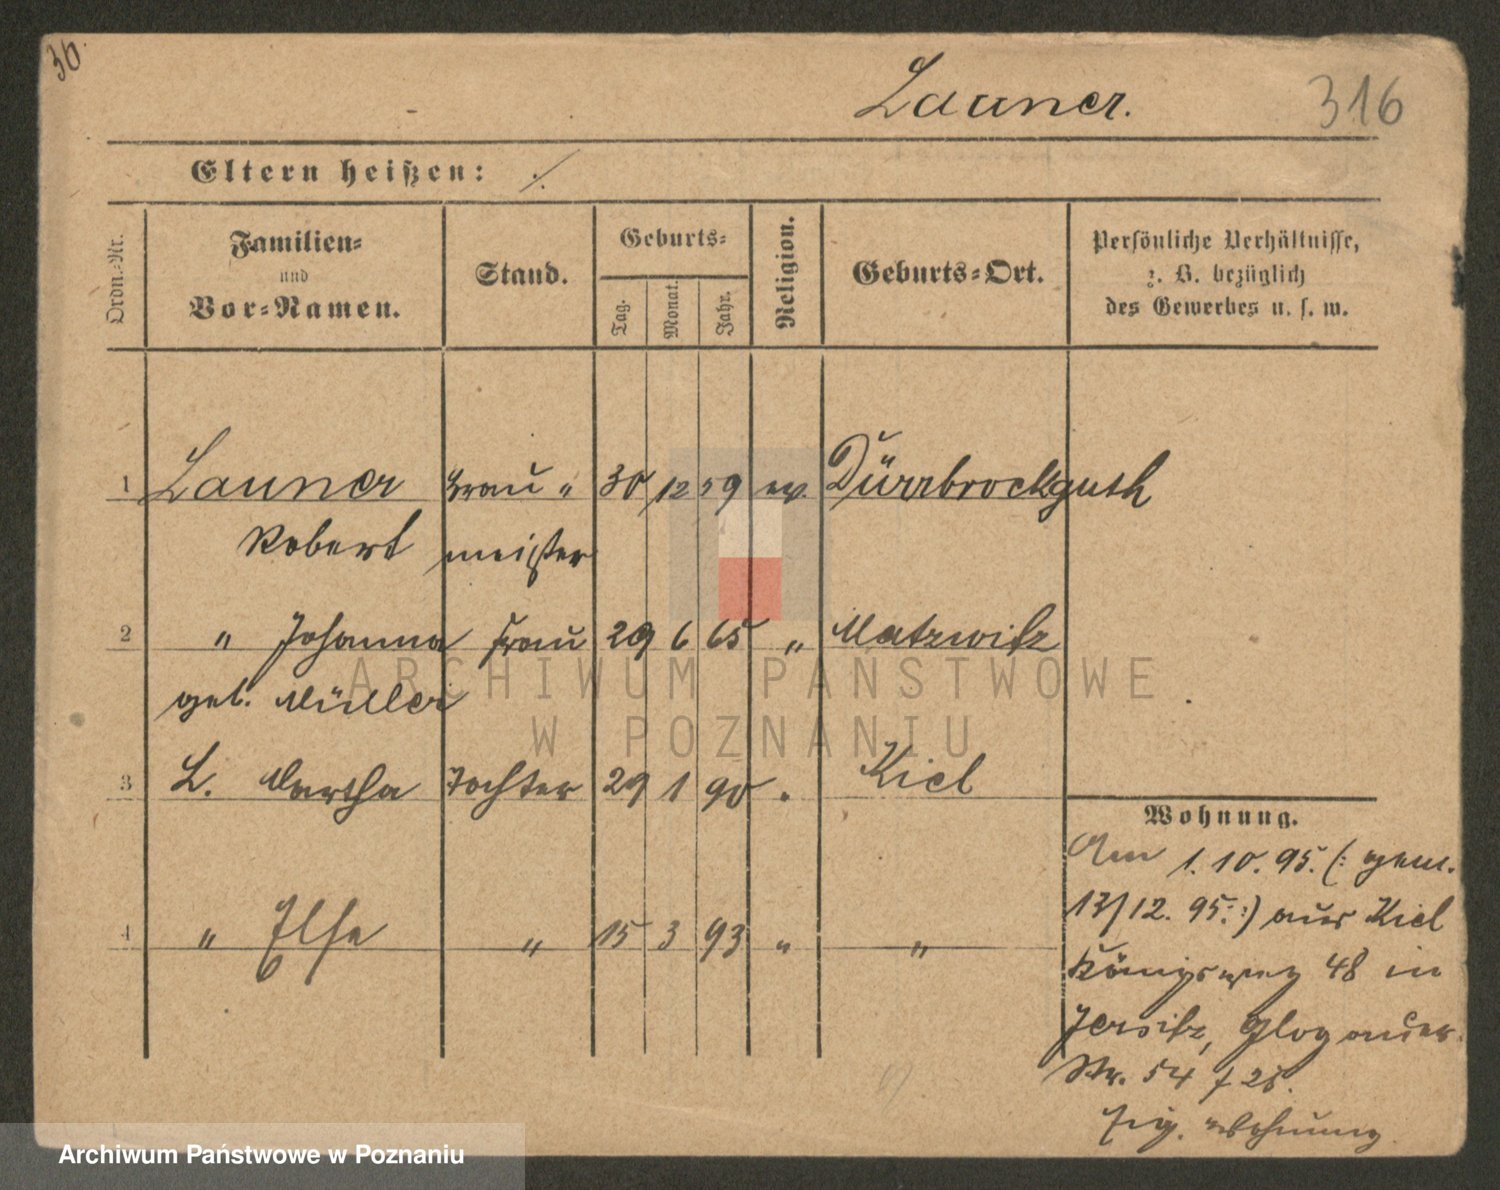 30.
Launer.
316
Eltern heißen: ·/.
Ordn.=Nr.
Familien=
und
Vor=Namen.
Stand.
Geburts=
Tag.
Monat.
Jahr.
Religion.
Geburts=Ort.
Persönliche Verhältnisse,
z. B. bezüglich
des Gewerbes u. s. w.
1 Launer Brau= 30 12 59 ev. Dürrbrockguth
Robert meister
2 " Johanna Frau 29 6 65 " Matzwitz
geb. Müller
3 L. Martha Tochter 29 1 90 " Kiel
4 " Else " 15 3 93 " "
Wohnung.
Am 1. 10. 95. (: gem.
13/12. 95. :) aus Kiel
Königsweg 48 in
Jersitz, Glogauer
Str. 54
Eig. Wohnung
ARCHIWUM PAŃSTWOWE
W POZNANIU
Archiwum Państwowe w Poznaniu